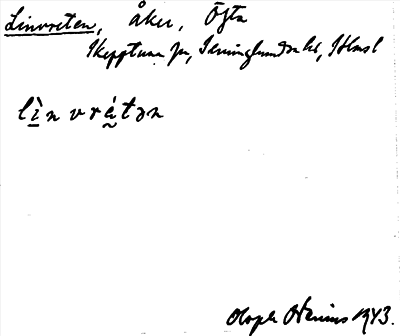 Linvreten, åker, Ögla
Skepptuna sn, Seminghundra hd, Sthms l
lìnvrétən
Oloph Odenius 1943.